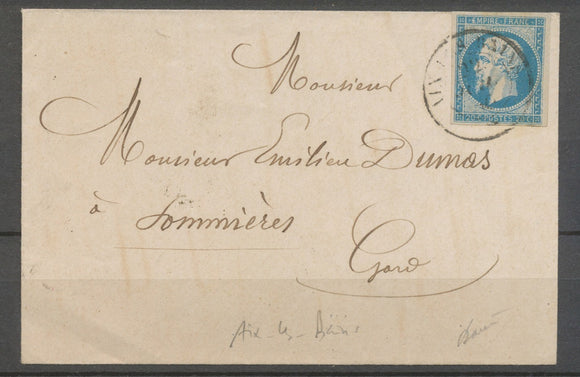 EMPIRE FRANC
20 C POSTES 20 C
Monsieur
Monsieur Emilien Dumas
à Sommières
Gard
Aix-les-Bains